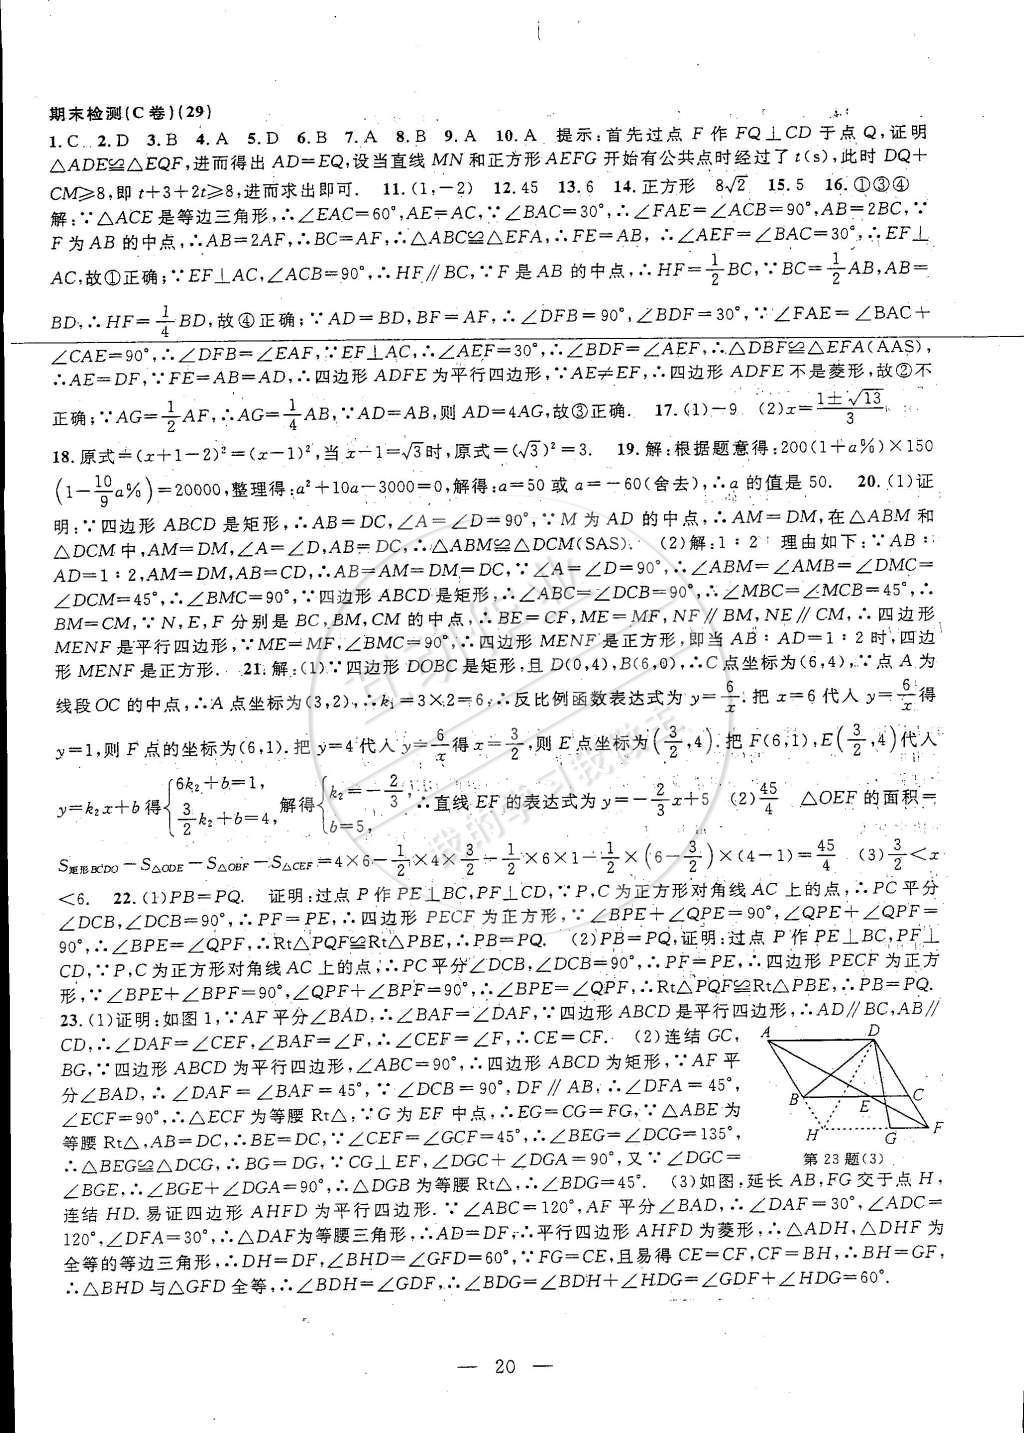 期末检测(C卷)(29)
1.C 2.D 3.B 4.A 5.D 6.B 7.A 8.B 9.A 10.A 提示:首先过点F作FQ⊥CD于点Q,证明
△ADE≌△EQF,进而得出AD=EQ,设当直线MN和正方形AEFG开始有公共点时经过了t(s),此时DQ+
CM≥8,即t+3+2t≥8,进而求出即可. 11.(1,-2) 12.45 13.6 14.正方形 8√2 15.5 16.①③④
解:∵△ACE是等边三角形,∴∠EAC=60°,AE=AC,∵∠BAC=30°,∴∠FAE=∠ACB=90°,AB=2BC,∵
F为AB的中点,∴AB=2AF,∴BC=AF,∴△ABC≌△EFA,∴FE=AB,∴∠AEF=∠BAC=30°,∴EF⊥
AC,故①正确;∵EF⊥AC,∠ACB=90°,∴HF∥BC,∵F是AB的中点,∴HF=1/2BC,∵BC=1/2AB,AB=
BD,∴HF=1/4BD,故④正确;∵AD=BD,BF=AF,∴∠DFB=90°,∠BDF=30°,∵∠FAE=∠BAC+
∠CAE=90°,∴∠DFB=∠EAF,∵EF⊥AC,∴∠AEF=30°,∴∠BDF=∠AEF,∴△DBF≌△EFA(AAS),
∴AE=DF,∵FE=AB=AD,∴四边形ADFE为平行四边形,∵AE≠EF,∴四边形ADFE不是菱形,故②不
正确;∵AG=1/2AF,∴AG=1/4AB,∵AD=AB,则AD=4AG,故③正确. 17.(1)-9 (2)x=(1±√13)/3
18.原式=(x+1-2)²=(x-1)²,当x-1=√3时,原式=(√3)²=3. 19.解:根据题意得:200(1+a%)×150
(1-10/9a%)=20000,整理得:a²+10a-3000=0,解得:a=50或a=-60(舍去),∴a的值是50. 20.(1)证
明:∵四边形ABCD是矩形,∴AB=DC,∠A=∠D=90°,∵M为AD的中点,∴AM=DM,在△ABM和
△DCM中,AM=DM,∠A=∠D,AB=DC,∴△ABM≌△DCM(SAS). (2)解:1∶2 理由如下:∵AB∶
AD=1∶2,AM=DM,AB=CD,∴AB=AM=DM=DC,∵∠A=∠D=90°,∴∠ABM=∠AMB=∠DMC=
∠DCM=45°,∴∠BMC=90°,∵四边形ABCD是矩形,∴∠ABC=∠DCB=90°,∴∠MBC=∠MCB=45°,∴
BM=CM,∵N,E,F分别是BC,BM,CM的中点,∴BE=CF,ME=MF,NF∥BM,NE∥CM,∴四边形
MENF是平行四边形,∵ME=MF,∠BMC=90°,∴四边形MENF是正方形,即当AB∶AD=1∶2时,四边
形MENF是正方形. 21.解:(1)∵四边形DOBC是矩形,且D(0,4),B(6,0),∴C点坐标为(6,4),∵点A为
线段OC的中点,∴A点坐标为(3,2),∴k₁=3×2=6,∴反比例函数表达式为y=6/x.把x=6代入y=6/x得
y=1,则F点的坐标为(6,1).把y=4代入y=6/x得x=3/2,则E点坐标为(3/2,4).把F(6,1),E(3/2,4)代入
y=k₂x+b得{6k₂+b=1, 3/2k₂+b=4, 解得{k₂=-2/3, b=5, ∴直线EF的表达式为y=-2/3x+5 (2)45/4 △OEF的面积=
S矩形BCDO-S△ODE-S△OBF-S△CEF=4×6-1/2×4×3/2-1/2×6×1-1/2×(6-3/2)×(4-1)=45/4 (3)3/2<x
<6. 22.(1)PB=PQ. 证明:过点P作PE⊥BC,PF⊥CD,∵P,C为正方形对角线AC上的点,∴PC平分
∠DCB,∠DCB=90°,∴PF=PE,∴四边形PECF为正方形,∵∠BPE+∠QPE=90°,∠QPE+∠QPF=
90°,∴∠BPE=∠QPF,∴Rt△PQF≌Rt△PBE,∴PB=PQ. (2)PB=PQ,证明:过点P作PE⊥BC,PF⊥
CD,∵P,C为正方形对角线AC上的点,∴PC平分∠DCB,∠DCB=90°,∴PF=PE,∴四边形PECF为正方
形,∵∠BPE+∠BPF=90°,∠QPF+∠BPF=90°,∴∠BPE=∠QPF,∴Rt△PQF≌Rt△PBE,∴PB=PQ.
23.(1)证明:如图1,∵AF平分∠BAD,∴∠BAF=∠DAF,∵四边形ABCD是平行四边形,∴AD∥BC,AB∥
CD,∴∠DAF=∠CEF,∠BAF=∠F,∴∠CEF=∠F,∴CE=CF. (2)连结GC,
BG,∵四边形ABCD为平行四边形,∠ABC=90°,∴四边形ABCD为矩形,∵AF平
分∠BAD,∴∠DAF=∠BAF=45°,∵∠DCB=90°,DF∥AB,∴∠DFA=45°,
∠ECF=90°,∴△ECF为等腰Rt△,∵G为EF中点,∴EG=CG=FG,∵△ABE为
等腰Rt△,AB=DC,∴BE=DC,∵∠CEF=∠GCF=45°,∴∠BEG=∠DCG=135°,
∴△BEG≌△DCG,∴BG=DG,∵CG⊥EF,∠DGC+∠DGA=90°,又∵∠DGC=
∠BGE,∴∠BGE+∠DGA=90°,∴△DGB为等腰Rt△,∴∠BDG=45°. (3)如图,延长AB,FG交于点H,
连结HD.易证四边形AHFD为平行四边形.∵∠ABC=120°,AF平分∠BAD,∴∠DAF=30°,∠ADC=
120°,∠DFA=30°,∴△DAF为等腰三角形,∴AD=DF,∴平行四边形AHFD为菱形,∴△ADH,△DHF为
全等的等边三角形,∴DH=DF,∠BHD=∠GFD=60°,∵FG=CE,且易得CE=CF,CF=BH,∴BH=GF,
∴△BHD与△GFD全等,∴∠BDH=∠GDF,∴∠BDG=∠BDH+∠HDG=∠GDF+∠HDG=60°.
A D
B E C
H G F
第23题(3)
— 20 —